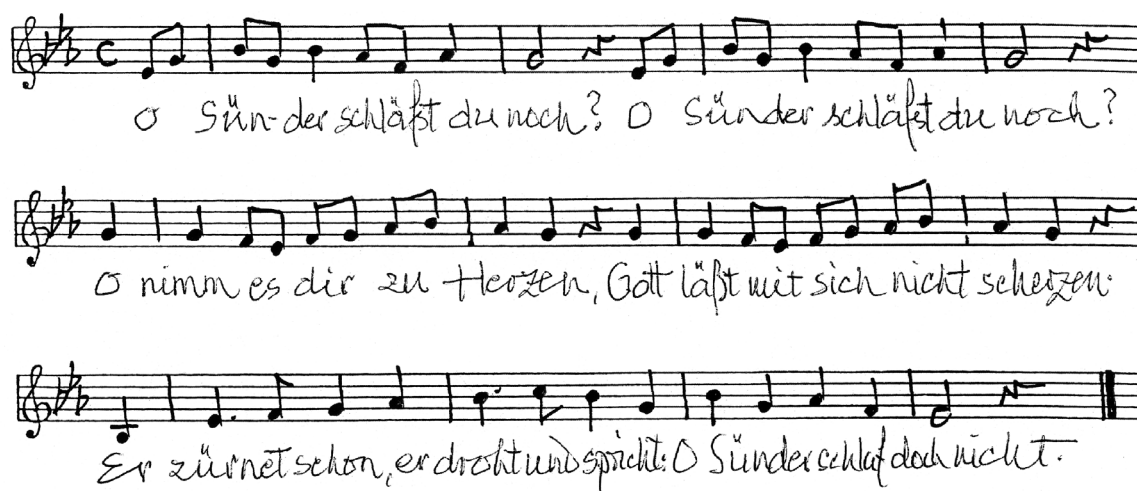 O Sün-der schläfst du noch? O Sünder schläfst du noch?
O nimm es dir zu Herzen, Gott läßt mit sich nicht scherzen.
Er zürnet schon, er droht und spricht: O Sünder schlaf doch nicht.